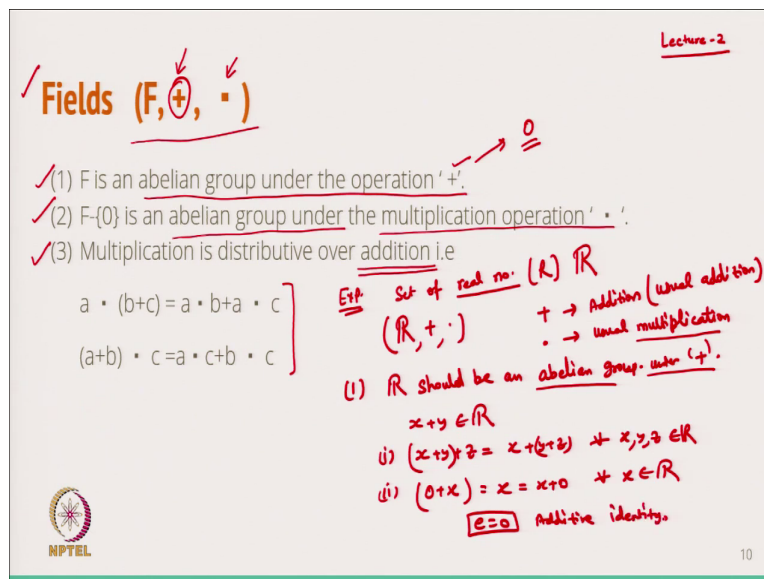 Lecture-2
Fields (F, +, ▪ )
(1) F is an abelian group under the operation ‘ +’.
(2) F-{0} is an abelian group under the multiplication operation ‘ ▪ ‘.
(3) Multiplication is distributive over addition i.e
a ▪ (b+c) = a ▪ b+a ▪ c
(a+b) ▪ c =a ▪ c+b ▪ c
0
Exp. Set of real no. (R) ℝ
(ℝ, +, ·)
+ → Addition (usual addition)
· → usual multiplication
(1) ℝ should be an abelian group. under '+'.
x+y ∈ ℝ
(i) (x+y)+z = x+(y+z) ∀ x,y,z ∈ ℝ
(ii) (0+x) = x = x+0 ∀ x ∈ ℝ
e=0 Additive identity.
NPTEL
10